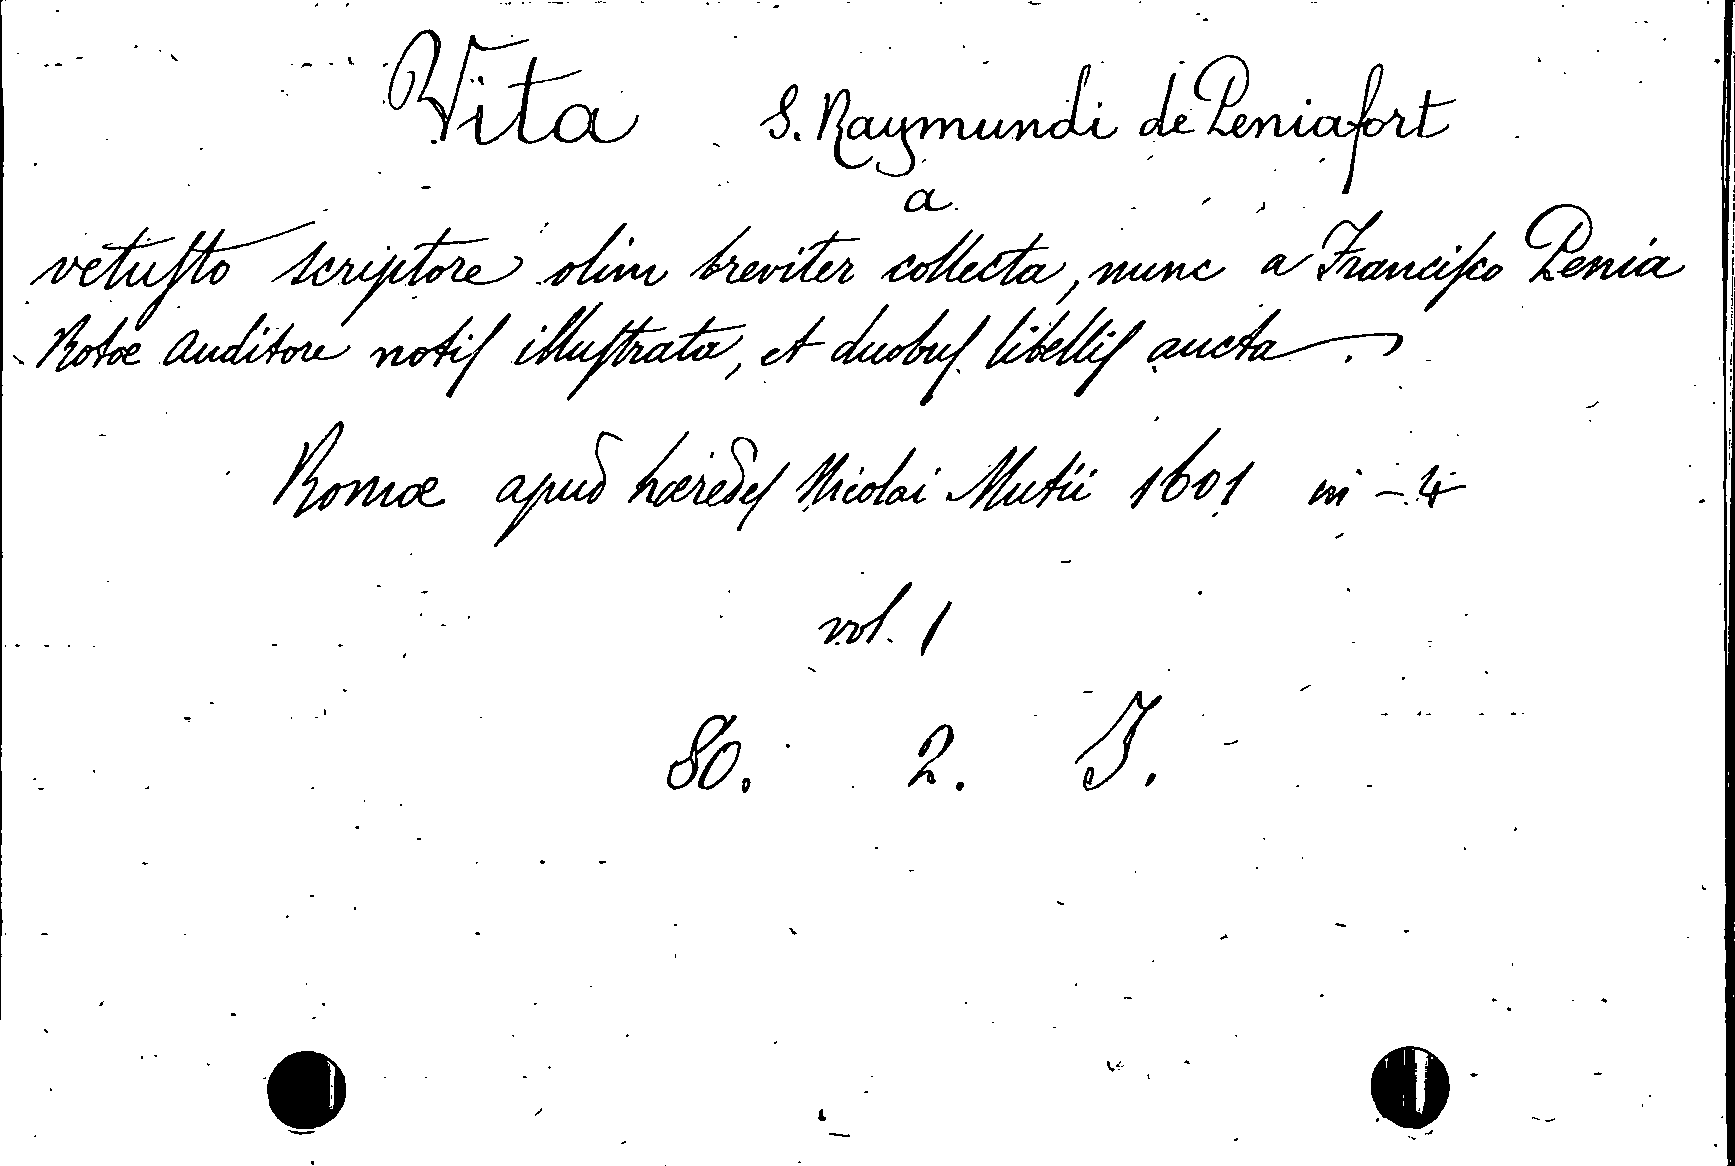 Vita S. Raymundi de Peniafort
a
vetuſto scriptore olim breviter collecta, nunc a Franciſco Penia
Rotæ Auditore notiſ illuſtrata, et duobuſ libelliſ aucta.
Romæ apud hæredeſ Nicolai Mutii 1601 in-4
vol. 1
80. 2. J.